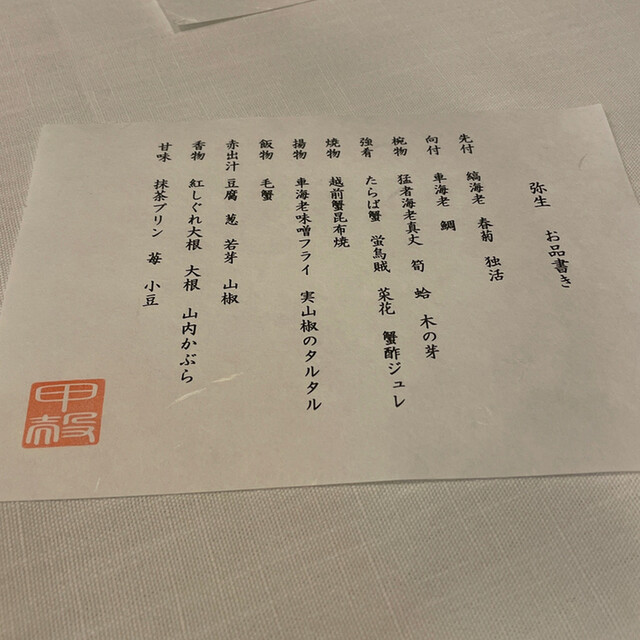 弥生 お品書き
先付 縞海老 春菊 独活
向付 車海老 鯛
椀物 猛者海老真丈 筍 蛤 木の芽
強肴 たらば蟹 蛍烏賊 菜花 蟹酢ジュレ
焼物 越前蟹昆布焼
揚物 車海老味噌フライ 実山椒のタルタル
飯物 毛蟹
赤出汁 豆腐 葱 若芽 山椒
香物 紅しぐれ大根 大根 山内かぶら
甘味 抹茶プリン 苺 小豆
甲殻